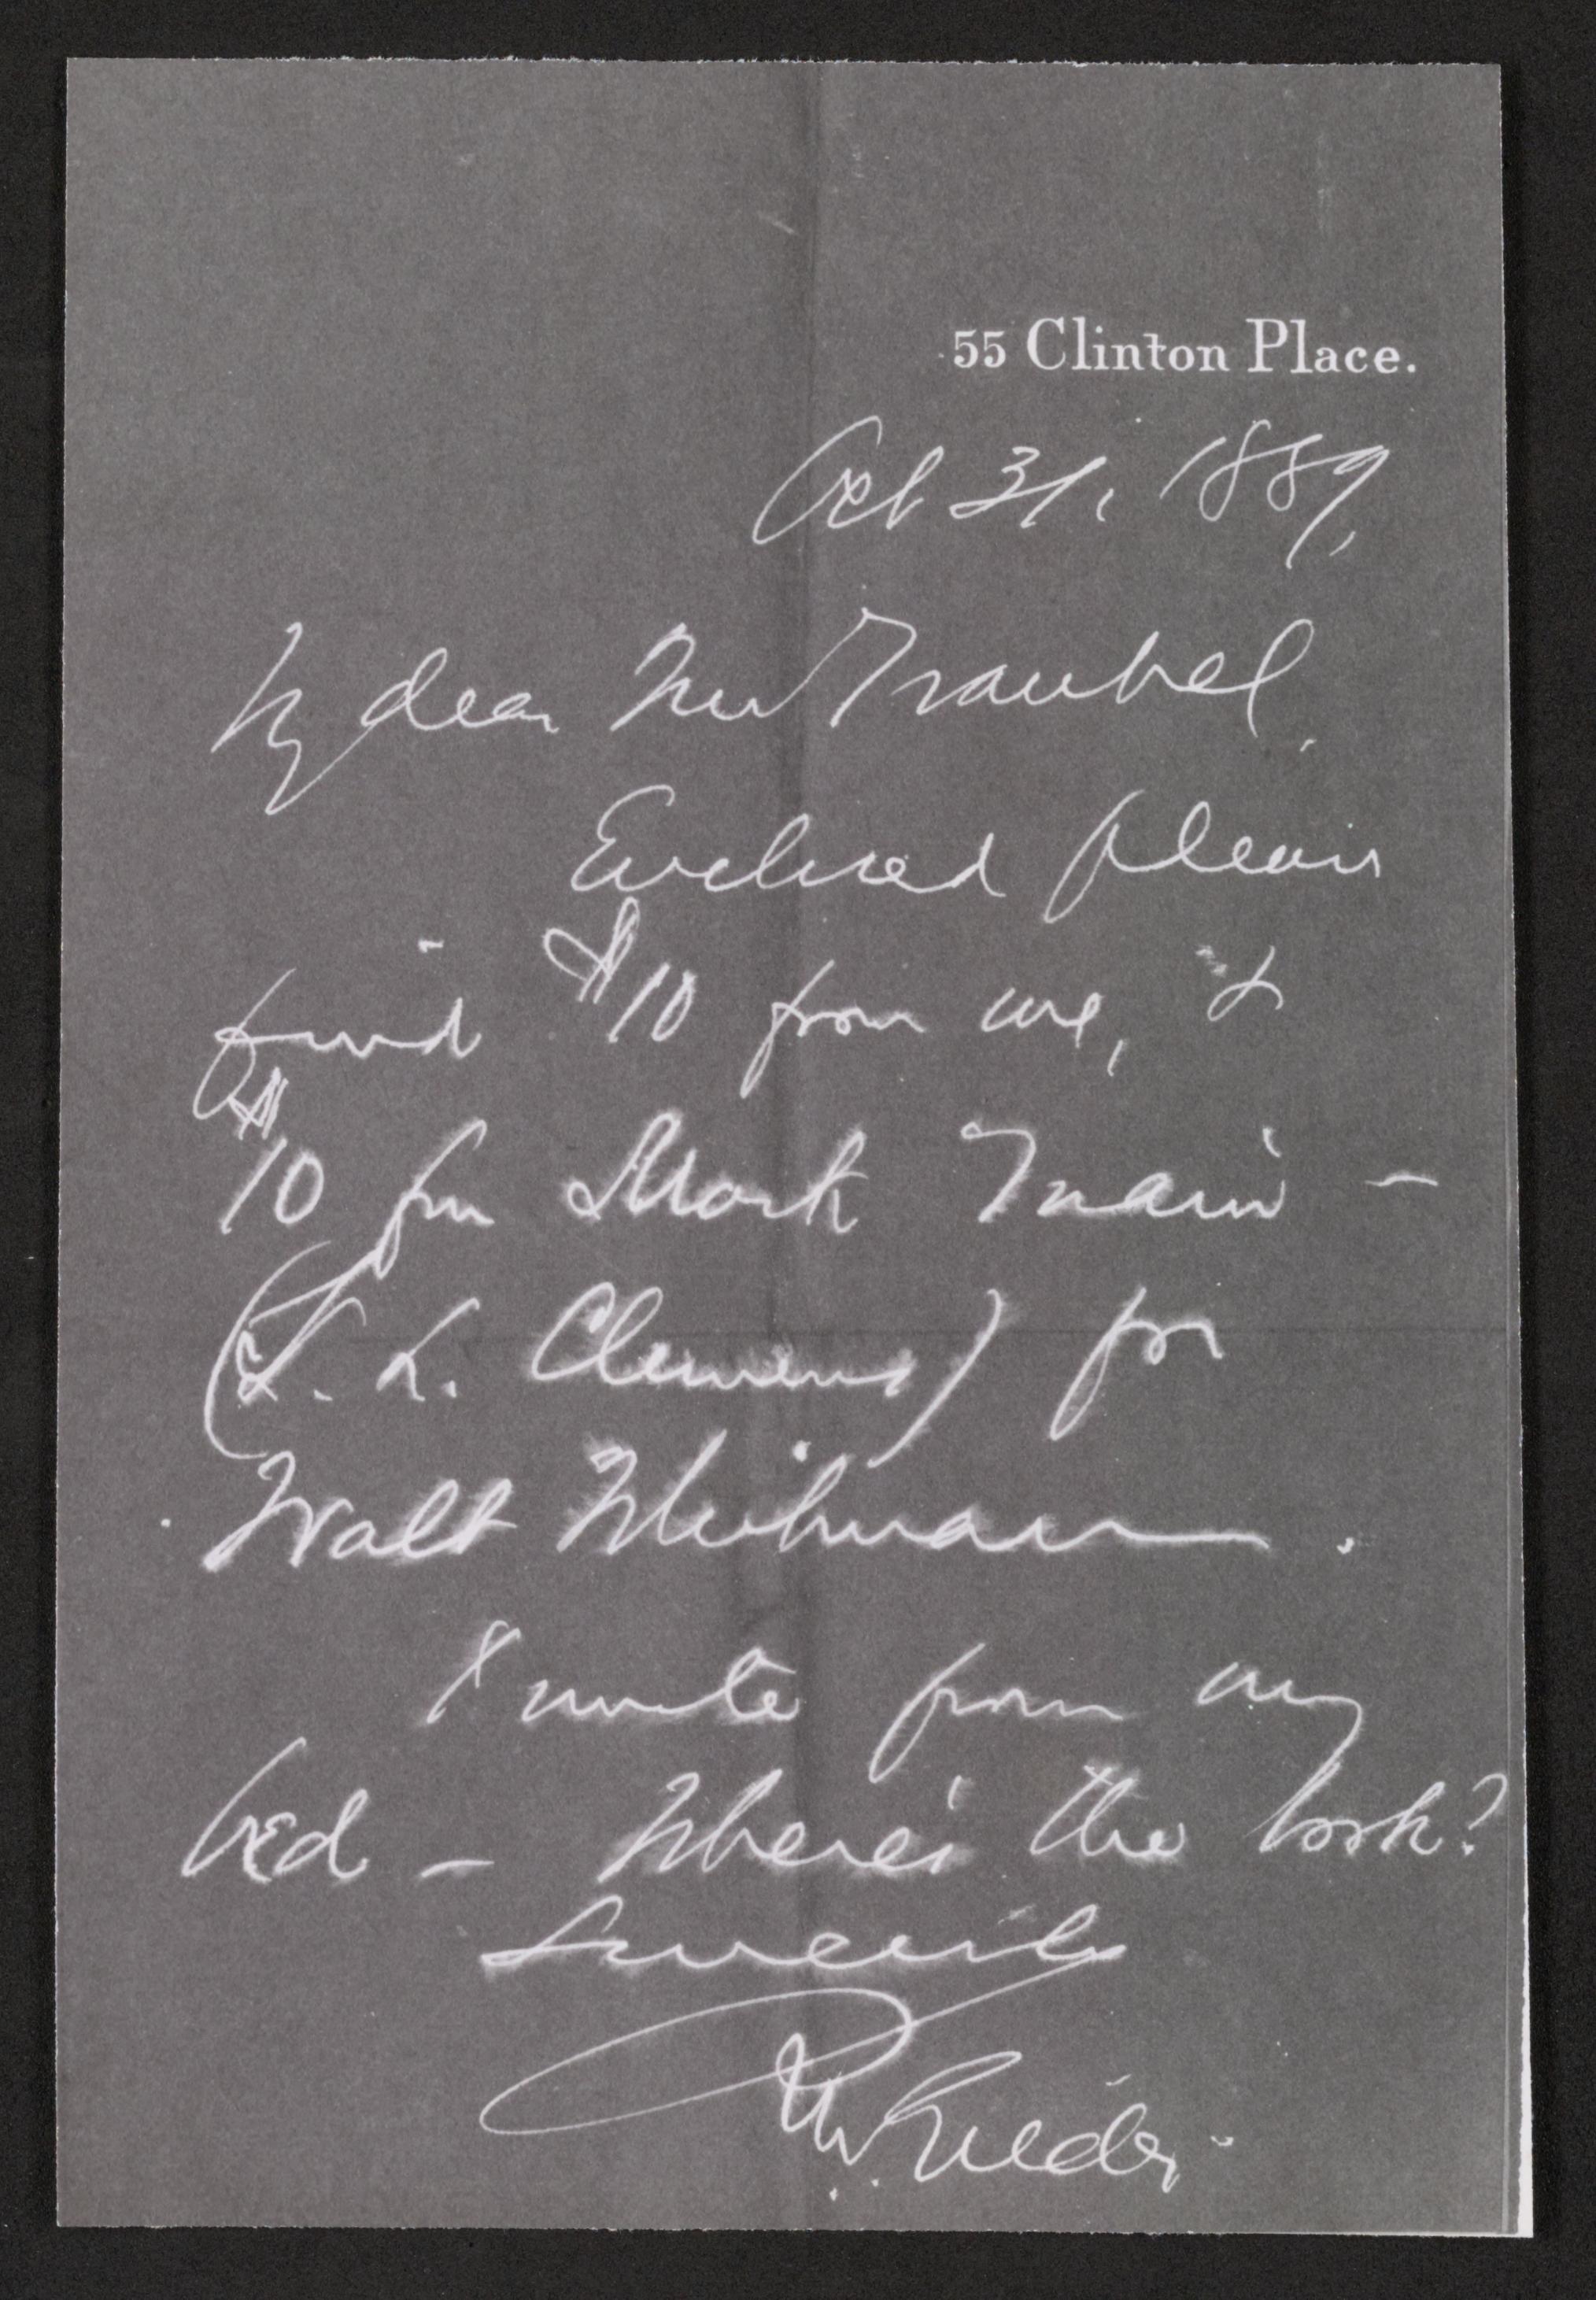 55 Clinton Place.
Oct 31, 1889,
My dear Mr Traubel,
Enclosed please
find $10 from me, &
$10 from Mark Twain —
(S. L. Clemens) for
Walt Whitman.
I write from my
bed — Where's the book?
Sincerely
R. W. Gilder.